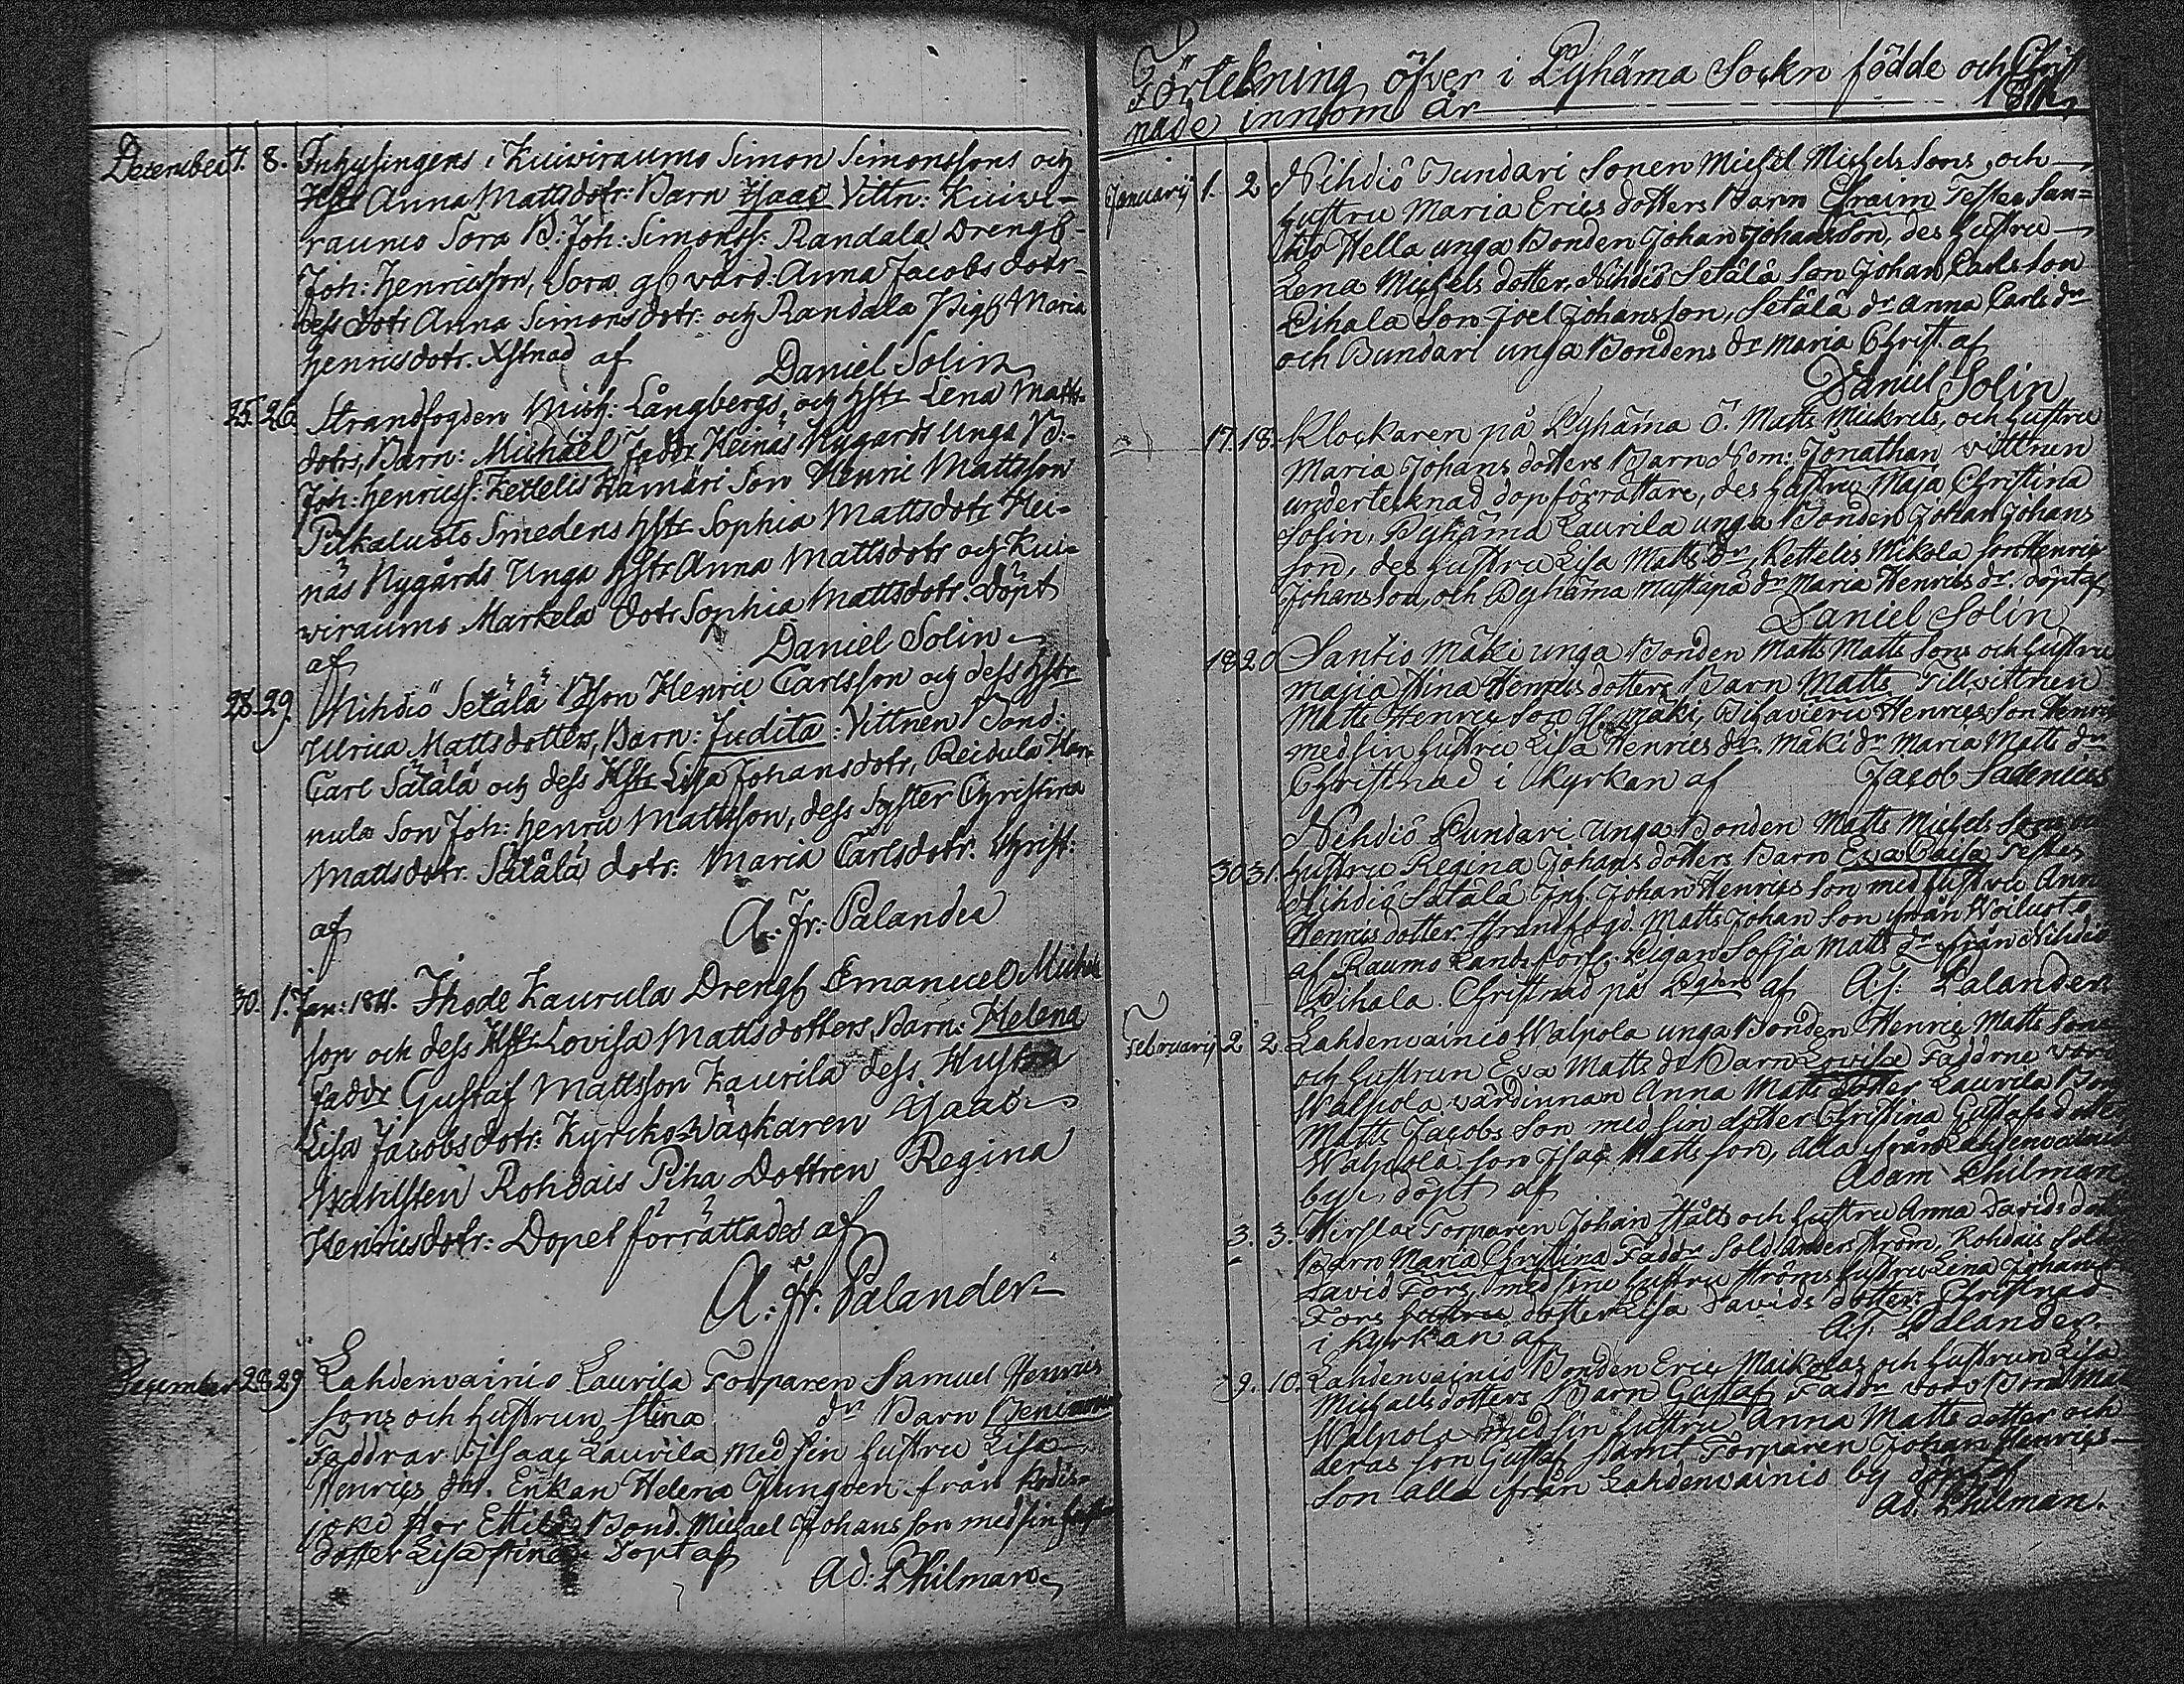 December 7. 8. Inhysingens i Kuiviraumo Simon Simonssons och
Hstr Anna Mattsdotr: Barn Isaac Vittn: Kuivi-
raumo Sora B: Joh: Simonss: Randala Drengs
Joh: Henricsson, Sora gl värd. Anna Jacobs dotr
dess dotr Anna Simonsdotr: och Randala Pigs Maria
Henricsdotr. Xstnad af
Daniel Solin
25. 26. Strandfogden Mich: Långbergs och hstr Lena Matts-
dotrs, Barn: Michaël Faddr Heinäs Nygårds Unga B:
Joh: Henricss: Kettelis Hämäri Son Henric Mattsson
Pitkäluoto Smedens hstr Sophia Mattsdotr Hei-
näs Nygårds Unga hstr Anna Mattsdotr och Kui-
viraumo Markela dotr Sophia Mattsdotr. Döpt
af Daniel Solin
28. 29. Nihdiö Setälä Bson Henric Carlsson och dess hstr
Ulrica Mattsdotters, Barn: Judita: Vittnen Bond:
Carl Sätälä och dess Hstr Lisa Johansdotr, Reidula Han-
nula Son Joh: Henric Mattsson, dess Syster Christina
Mattsdotr. Sätälä dotr: Maria Carlsdotr. Christ:
af A: Fr: Palander
30. 1. Jan: 1811. Ihode Kaurula Drengs Emanuel Michels
son och dess Hstr Lovisa Mattsdotters, Barn: Helena
Faddr Gustaf Mattsson Kaurila dess Hustru
Lisa Jacobsdotr: Kyrcko-Väcktaren Isaac
Wahlsten Rohdais Piha Dottren Regina
Henricsdotr: Dopet förrättades af
A: Fr: Palander
December 28 29 Lahdenvainio Laurila Torparen Samuel Henrics
sons och hustrun Stina dr Barn Beniamin
Faddrar Isaac Laurila med sin hustru Lisa
Henrics dr. Enkan Helena från
Bond. Michael Johansson med sin
dotter Lisa Stina Döpt af
Ad: Philman
Förtekning öfver i Pyhäma Sockn födde och Christ
nade innom år 1811
Januarij 1. 2 Nihdiö Pundari Sonen Michel Michels Sons, och
hustru Maria Erics dotters Barn Efraim Testes San-
tio Hella unga Bonden Johan Johansson, des hustru
Lena Michels dotter, Nihdiö Setälä Son Johan Carlsson
Pihala Son Joel Johansson, Setälä dr Anna Carls dr
och Pundari unga Bondens dr Maria Christ. af
Daniel Solin
17. 18. Klockaren på Pyhäma Ö. Matts Mickrels, och hustru
Maria Johans dotters Barn Nom: Jonathan vittnen
undertecknad dopförrättare, des hustru Maja Christina
Solin, Pyhäma Laurila unga Bonden Johan Johans
son, des hustru Lisa Matts dr, Kettelis Mikola son Henric
Johansson, och Pyhäma Mustapä dr Maria Henrics dr. döpt af
Daniel Solin
18 20 Santio Mäki unga Bonden Matts Matts Sons och hustru
Majia Stina Henrics dotters Barn Matts Till vittnen
Matts Henrics Son gl. Mäki, Henrics Son Henric
med sin hustru Lisa Henrics dr. Mäki dr Maria Matts dr
Christnad i Kyrkan af Jacob Sadenius
Nihdiö Pundari unga Bonden Matts Michels Sons och
30 31. hustru Regina Johans dotters Barn Eva Caisa Testes
Nihdiö Sätälä Inh. Johan Henrics son med hustru Anna
Henrics dotter. Strandfogd. Matts Johan Son ifrån Woiluoto
af Raumo Lands förs. Pigan Sofja Matts dr ifrån Nihdiö
Pihala. Christnad på af A.F. Palander
Februarij 2 2. Lahdenvainio Walpola unga Bonden Henric Matts Sons
och hustrun Eva Matts dr Barn Lovisa Faddrne voro
Walpola värdinnan Anna Matts dotter Laurila Bon
Matts Jacobs Son med sin dotter Christina Gustafs dotter
Walpola son Isac Matts son, alla från Lahdenvainio
by, döpt af Adam Philman
3. 3. Hirslax Torparen Johan Stålts och hustru Anna Davids dotr
Barn Maria Christina Faddr Sold. Anders Ström, Rohdais Sold
David Fors, med sine hustru Ströms hustru Lena Johans
Fors hustru dotter Lisa Davids dotter Christnad
i Kyrkan af A.F. Palander
9. 10. Lahdenvainio Bonden Eric Maikolas och hustrun Lisa
Michaels dotters Barn Gustaf Faddr voro Bond Mat
Walpola med sin hustru Anna Matts dotter och
deras son Gustaf samt Torparen Johan Henrics
Son alla ifrån Lahdenvainio by döpt af
Ad. Philman.